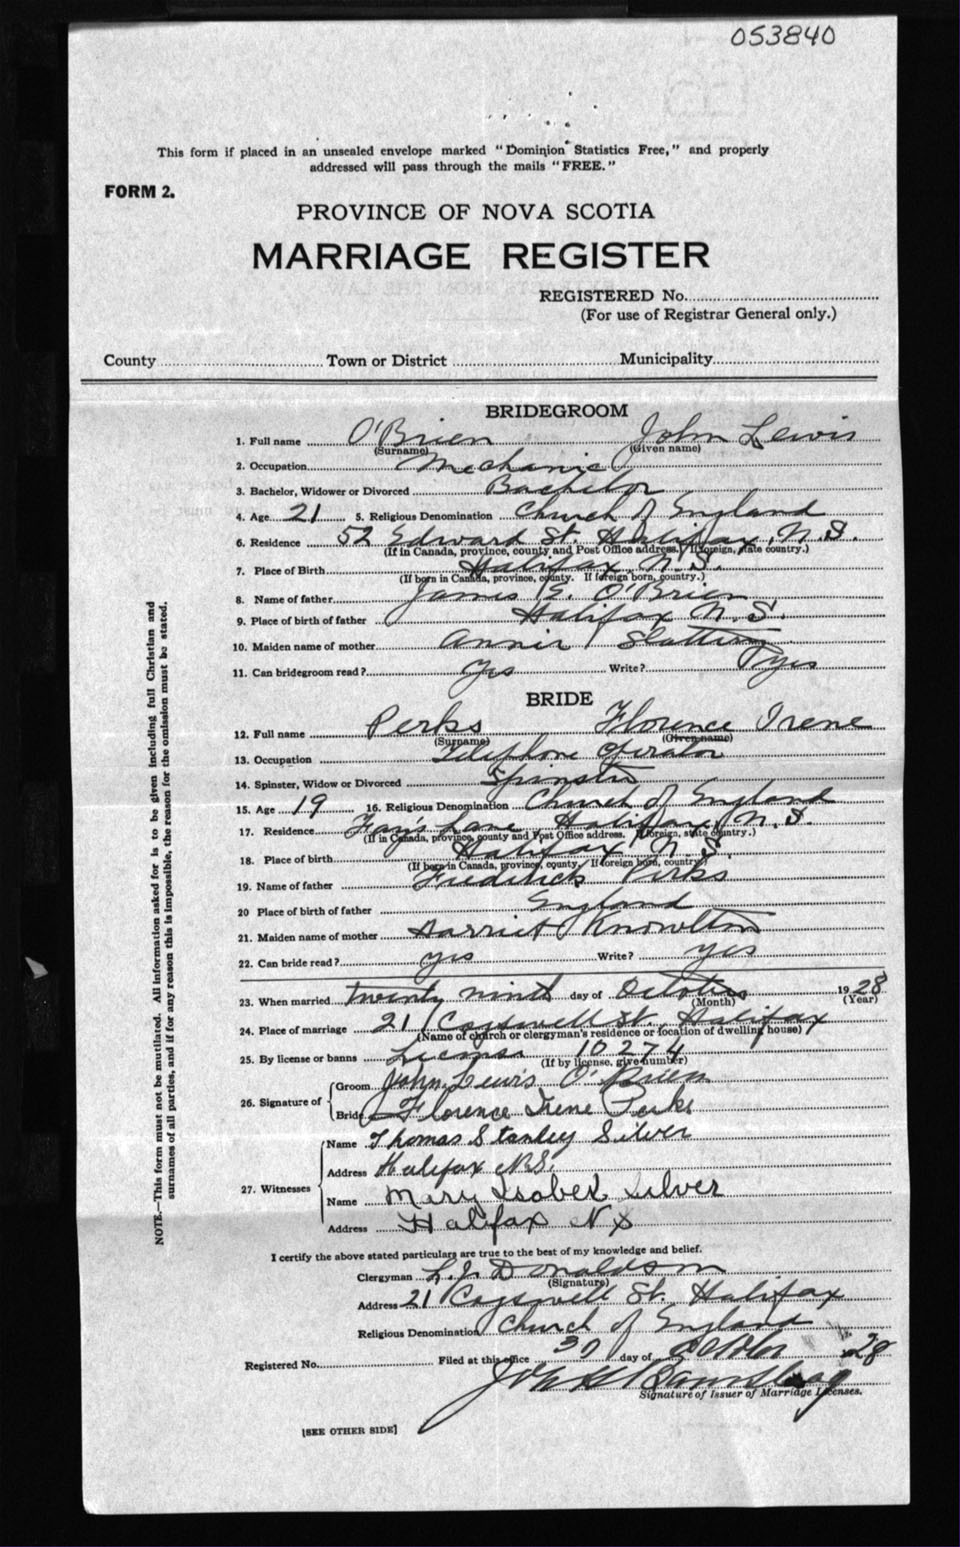 053840
This form if placed in an unsealed envelope marked "Dominion Statistics Free," and properly
addressed will pass through the mails "FREE."
FORM 2.
PROVINCE OF NOVA SCOTIA
MARRIAGE REGISTER
REGISTERED No.
(For use of Registrar General only.)
County Town or District Municipality
BRIDEGROOM
1. Full name O'Brien John Lewis
(Surname) (Given name)
2. Occupation Mechanic
3. Bachelor, Widower or Divorced Bachelor
4. Age 21 5. Religious Denomination Church of England
6. Residence 52 Edward St. Halifax, N.S.
(If in Canada, province, county and Post Office address. If foreign, state country.)
7. Place of Birth Halifax N.S.
(If born in Canada, province, county. If foreign born, country.)
8. Name of father James E. O'Brien
9. Place of birth of father Halifax N.S.
10. Maiden name of mother Annie
11. Can bridegroom read? yes Write? yes
BRIDE
12. Full name Perks Florence Irene
(Surname) (Given name)
13. Occupation Telephone Operator
14. Spinster, Widow or Divorced Spinster
15. Age 19 16. Religious Denomination Church of England
17. Residence Lane Halifax, N.S.
(If in Canada, province, county and Post Office address. If foreign, state country.)
18. Place of birth Halifax N.S.
(If born in Canada, province, county. If foreign born, country)
19. Name of father Frederick Perks
20 Place of birth of father England
21. Maiden name of mother Harriet Knowlton
22. Can bride read? yes Write? yes
23. When married twenty ninth day of October 1928
(Month) (Year)
24. Place of marriage 21 Cogswell St. Halifax
(Name of church or clergyman's residence or location of dwelling house)
25. By license or banns License 10274
(If by license, give number)
26. Signature of Groom John Lewis O'Brien
Bride Florence Irene Perks
27. Witnesses Name Thomas Stanley Silver
Address Halifax N.S.
Name Mary Isobel Silver
Address Halifax N S
I certify the above stated particulars are true to the best of my knowledge and belief.
Clergyman L. J. Donaldson
(Signature)
Address 21 Cogswell St. Halifax
Religious Denomination Church of England
Registered No. Filed at this office 30 day of October 1928
Signature of Issuer of Marriage Licenses.
[SEE OTHER SIDE]
NOTE.—This form must not be mutilated. All information asked for is to be given including full Christian and
surnames of all parties, and if for any reason this is impossible, the reason for the omission must be stated.